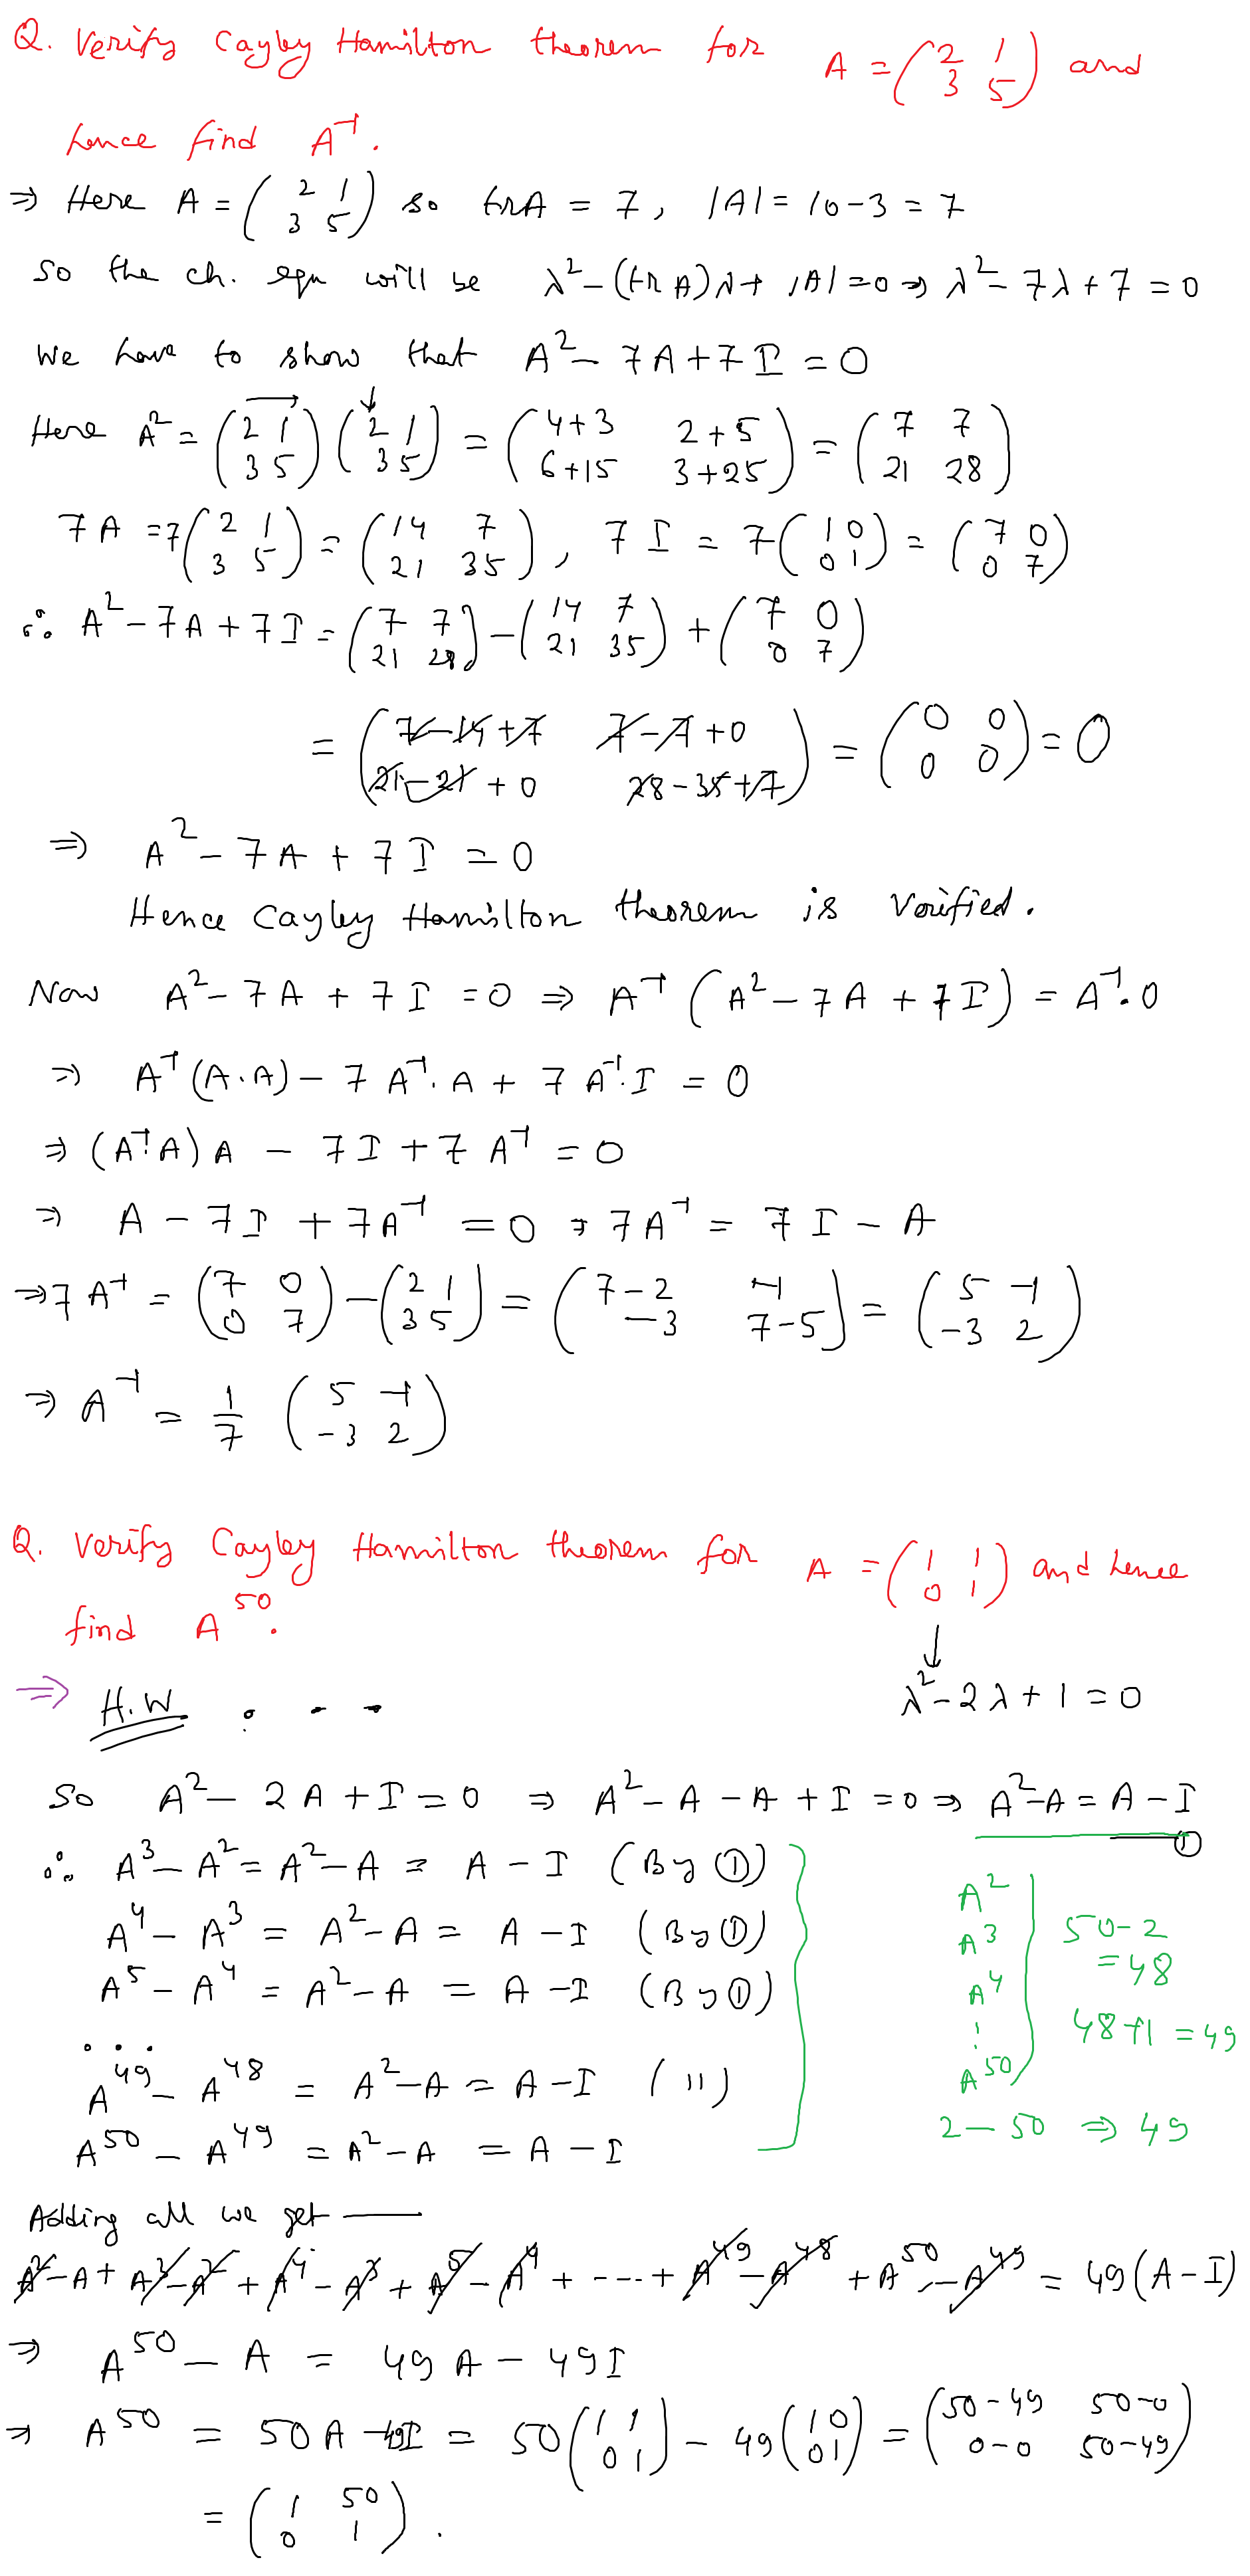 Q. Verify Cayley Hamilton theorem for A = (2 1; 3 5) and
hence find A⁻¹.
⇒ Here A = (2 1; 3 5) so trA = 7, |A| = 10-3 = 7
So the ch. eqn will be λ² - (tr A)λ + |A| = 0 ⇒ λ² - 7λ + 7 = 0
We have to show that A² - 7A + 7I = 0
Here A² = (2 1; 3 5) (2 1; 3 5) = (4+3 2+5; 6+15 3+25) = (7 7; 21 28)
7A = 7(2 1; 3 5) = (14 7; 21 35), 7I = 7(1 0; 0 1) = (7 0; 0 7)
∴ A² - 7A + 7I = (7 7; 21 28) - (14 7; 21 35) + (7 0; 0 7)
= (7-14+7 7-7+0; 21-21+0 28-35+7) = (0 0; 0 0) = 0
⇒ A² - 7A + 7I = 0
Hence Cayley Hamilton theorem is Verified.
Now A² - 7A + 7I = 0 ⇒ A⁻¹ (A² - 7A + 7I) = A⁻¹.0
⇒ A⁻¹(A.A) - 7A⁻¹.A + 7A⁻¹.I = 0
⇒ (A⁻¹.A)A - 7I + 7A⁻¹ = 0
⇒ A - 7I + 7A⁻¹ = 0 ⇒ 7A⁻¹ = 7I - A
⇒ 7A⁻¹ = (7 0; 0 7) - (2 1; 3 5) = (7-2 -1; -3 7-5) = (5 -1; -3 2)
⇒ A⁻¹ = 1/7 (5 -1; -3 2)
Q. Verify Cayley Hamilton theorem for A = (1 1; 0 1) and hence
find A⁵⁰.
↓
⇒ H.W . . .
λ² - 2λ + 1 = 0
So A² - 2A + I = 0 ⇒ A² - A - A + I = 0 ⇒ A² - A = A - I
①
∴ A³ - A² = A² - A = A - I (By ①)
A⁴ - A³ = A² - A = A - I (By ①)
A⁵ - A⁴ = A² - A = A - I (By ①)
...
A⁴⁹ - A⁴⁸ = A² - A = A - I ( " )
A⁵⁰ - A⁴⁹ = A² - A = A - I
A²
A³
A⁴
⋮
A⁵⁰
50-2
= 48
48+1 = 49
2 - 50 ⇒ 49
Adding all we get —
A² - A + A³ - A² + A⁴ - A³ + A⁵ - A⁴ + ---- + A⁴⁹ - A⁴⁸ + A⁵⁰ - A⁴⁹ = 49(A - I)
⇒ A⁵⁰ - A = 49A - 49I
⇒ A⁵⁰ = 50A - 49I = 50(1 1; 0 1) - 49(1 0; 0 1) = (50-49 50-0; 0-0 50-49)
= (1 50; 0 1).